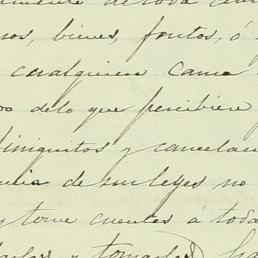 de toda
bienes, frutos, ó
cualquiera causa
de lo que percibiere
finiquitos y cancelac
de sus leyes no
y tome cuentas á toda
y tomarlas,